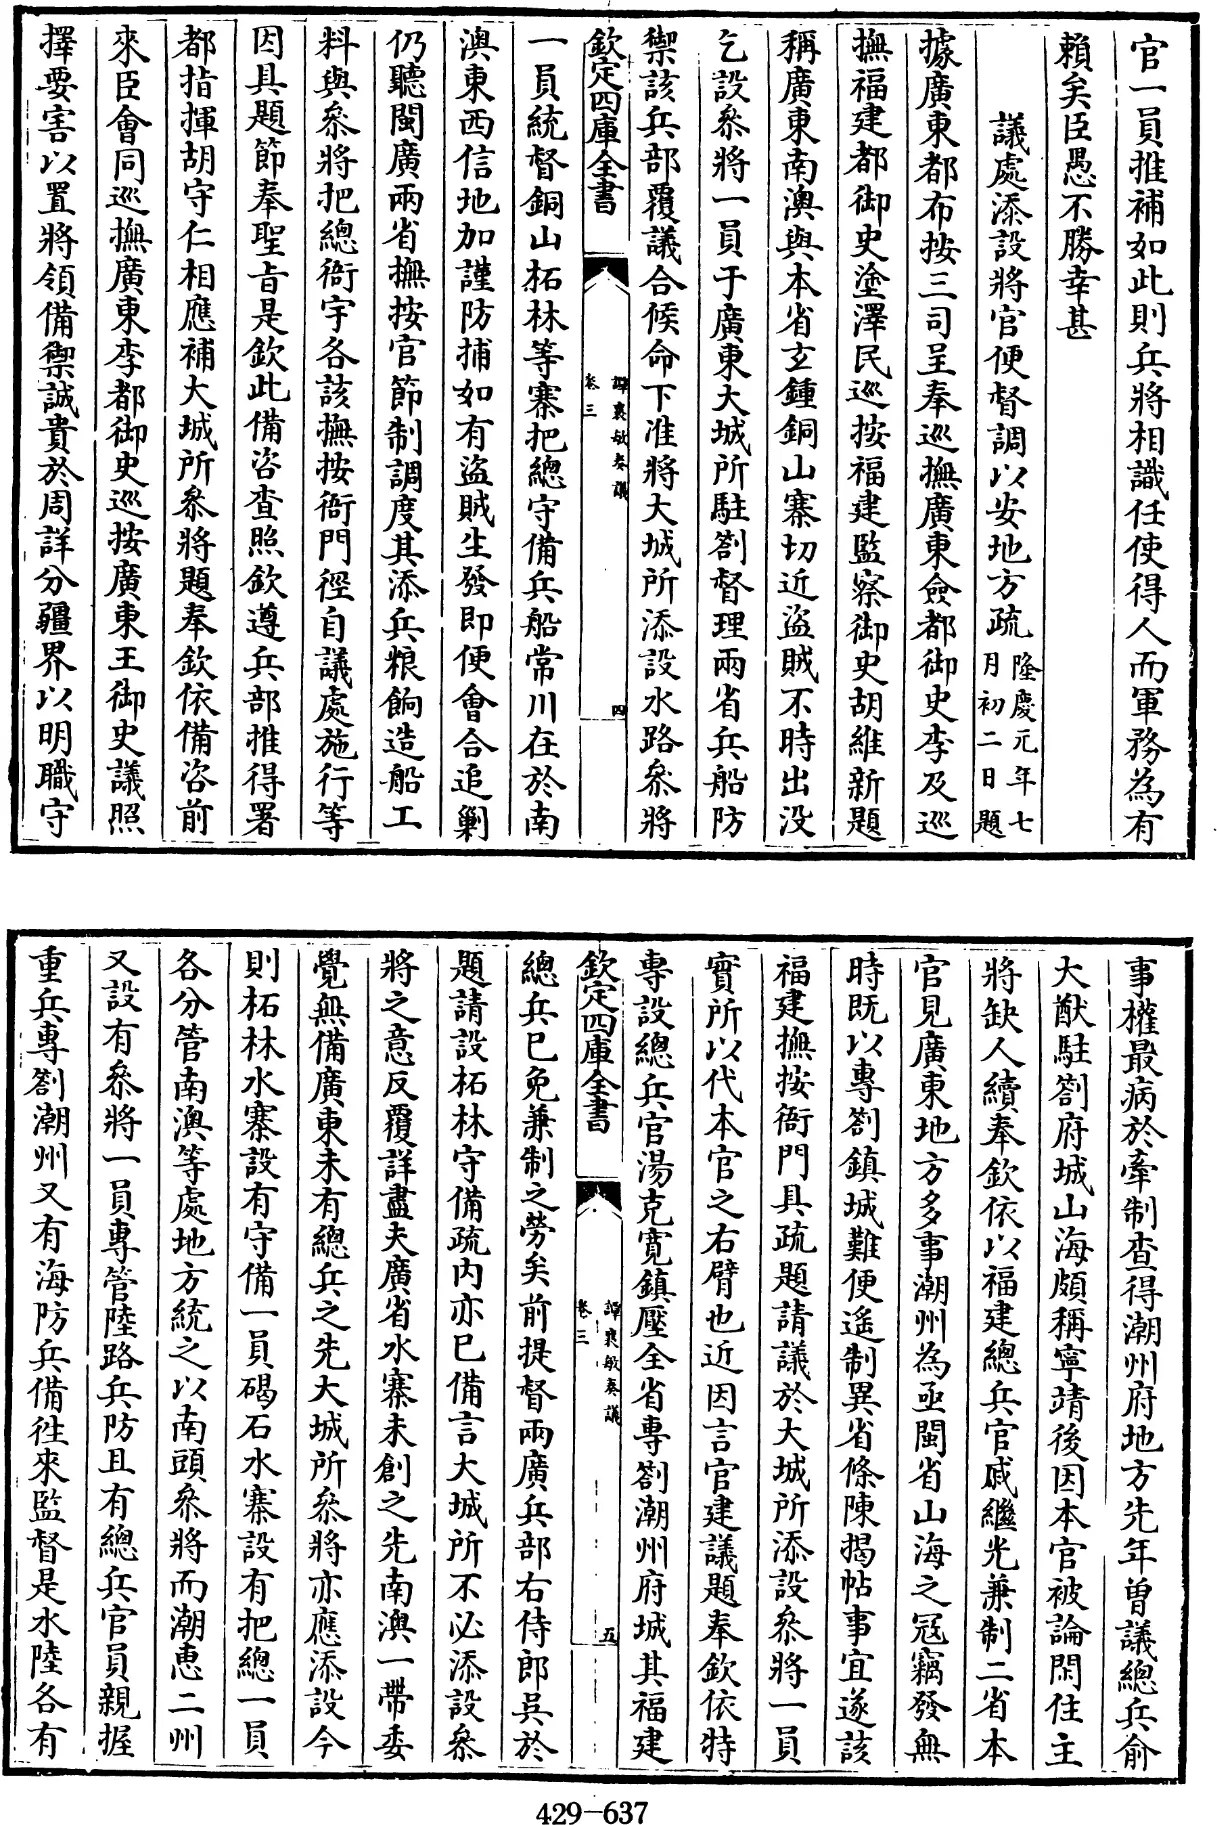 官一員推補如此則兵將相識任使得人而軍務為有
賴矣臣愚不勝幸甚
議處添設將官便督調以安地方疏隆慶元年七
月初二日題
據廣東都布按三司呈奉巡撫廣東僉都御史李及巡
撫福建都御史塗澤民巡按福建監察御史胡維新題
稱廣東南澳與本省玄鍾銅山寨切近盜賊不時出没
乞設叅將一員于廣東大城所駐劄督理兩省兵船防
禦該兵部覆議合候命下准將大城所添設水路叅將
欽定四庫全書
譚襄敏奏議
卷三
四
一員統督銅山柘林等寨把總守備兵船常川在於南
澳東西信地加謹防捕如有盜賊生發即便會合追剿
仍聽閩廣兩省撫按官節制調度其添兵粮餉造船工
料與叅將把總衙宇各該撫按衙門徑自議處施行等
因具題節奉聖旨是欽此備咨查照欽遵兵部推得署
都指揮胡守仁相應補大城所叅將題奉欽依備咨前
來臣會同巡撫廣東李都御史巡按廣東王御史議照
擇要害以置將領備禦誠貴於周詳分疆界以明職守
事權最病於牽制查得潮州府地方先年曽議總兵俞
大猷駐劄府城山海頗稱寧靖後因本官被論閑住主
將缺人續奉欽依以福建總兵官戚繼光兼制二省本
官見廣東地方多事潮州為亟閩省山海之冦竊發無
時既以專劄鎮城難便遥制異省條陳揭帖事宜遂該
福建撫按衙門具疏題請議於大城所添設叅將一員
實所以代本官之右臂也近因言官建議題奉欽依特
專設總兵官湯克寛鎮壓全省專劄潮州府城其福建
欽定四庫全書
譚襄敏奏議
卷三
五
總兵已免兼制之勞矣前提督兩廣兵部右侍郎吳於
題請設柘林守備疏内亦已備言大城所不必添設叅
將之意反覆詳盡夫廣省水寨未創之先南澳一帶委
覺無備廣東未有總兵之先大城所叅將亦應添設今
則柘林水寨設有守備一員碣石水寨設有把總一員
各分管南澳等處地方統之以南頭叅將而潮惠二州
又設有叅將一員專管陸路兵防且有總兵官員親握
重兵專劄潮州又有海防兵備徃來監督是水陸各有
429-637